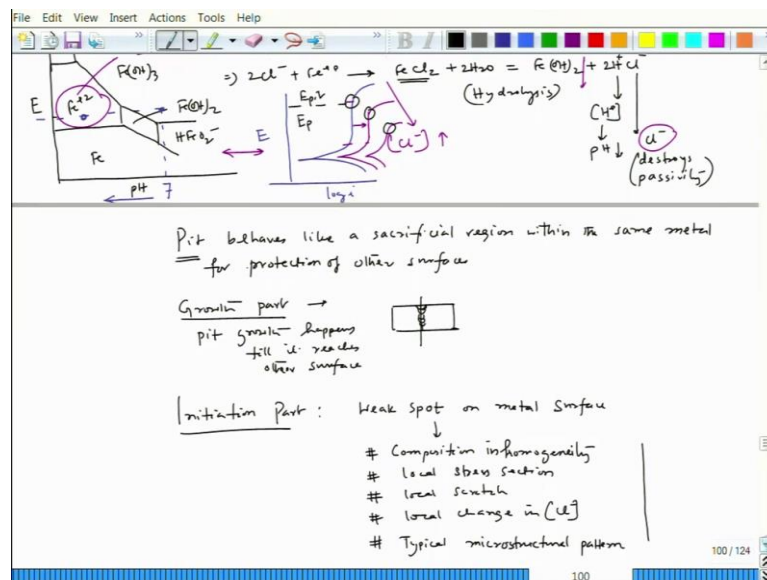 File Edit View Insert Actions Tools Help
Fe(OH)3
⇒) 2Cl⁻ + Fe⁺² → FeCl2 + 2H2O = Fe(OH)2 ↓ + 2H⁺Cl⁻
(Hydrolysis)
E Fe+2 Fe(OH)2
HFeO2⁻
Fe
pH 7
Epit
Ep
E
[Cl⁻] ↑
log i
[H⁺]
↓
pH ↓
Cl⁻
(destroys
passivity)
Pit behaves like a sacrificial region within the same metal
for protection of other surface
Growth part →
pit growth happens
till it reaches
other surface
Initiation Part : Weak spot on metal surface
↓
# Composition inhomogeneity
# local stress section
# local scratch
# local change in [Cl⁻]
# Typical microstructural pattern
100 / 124
100